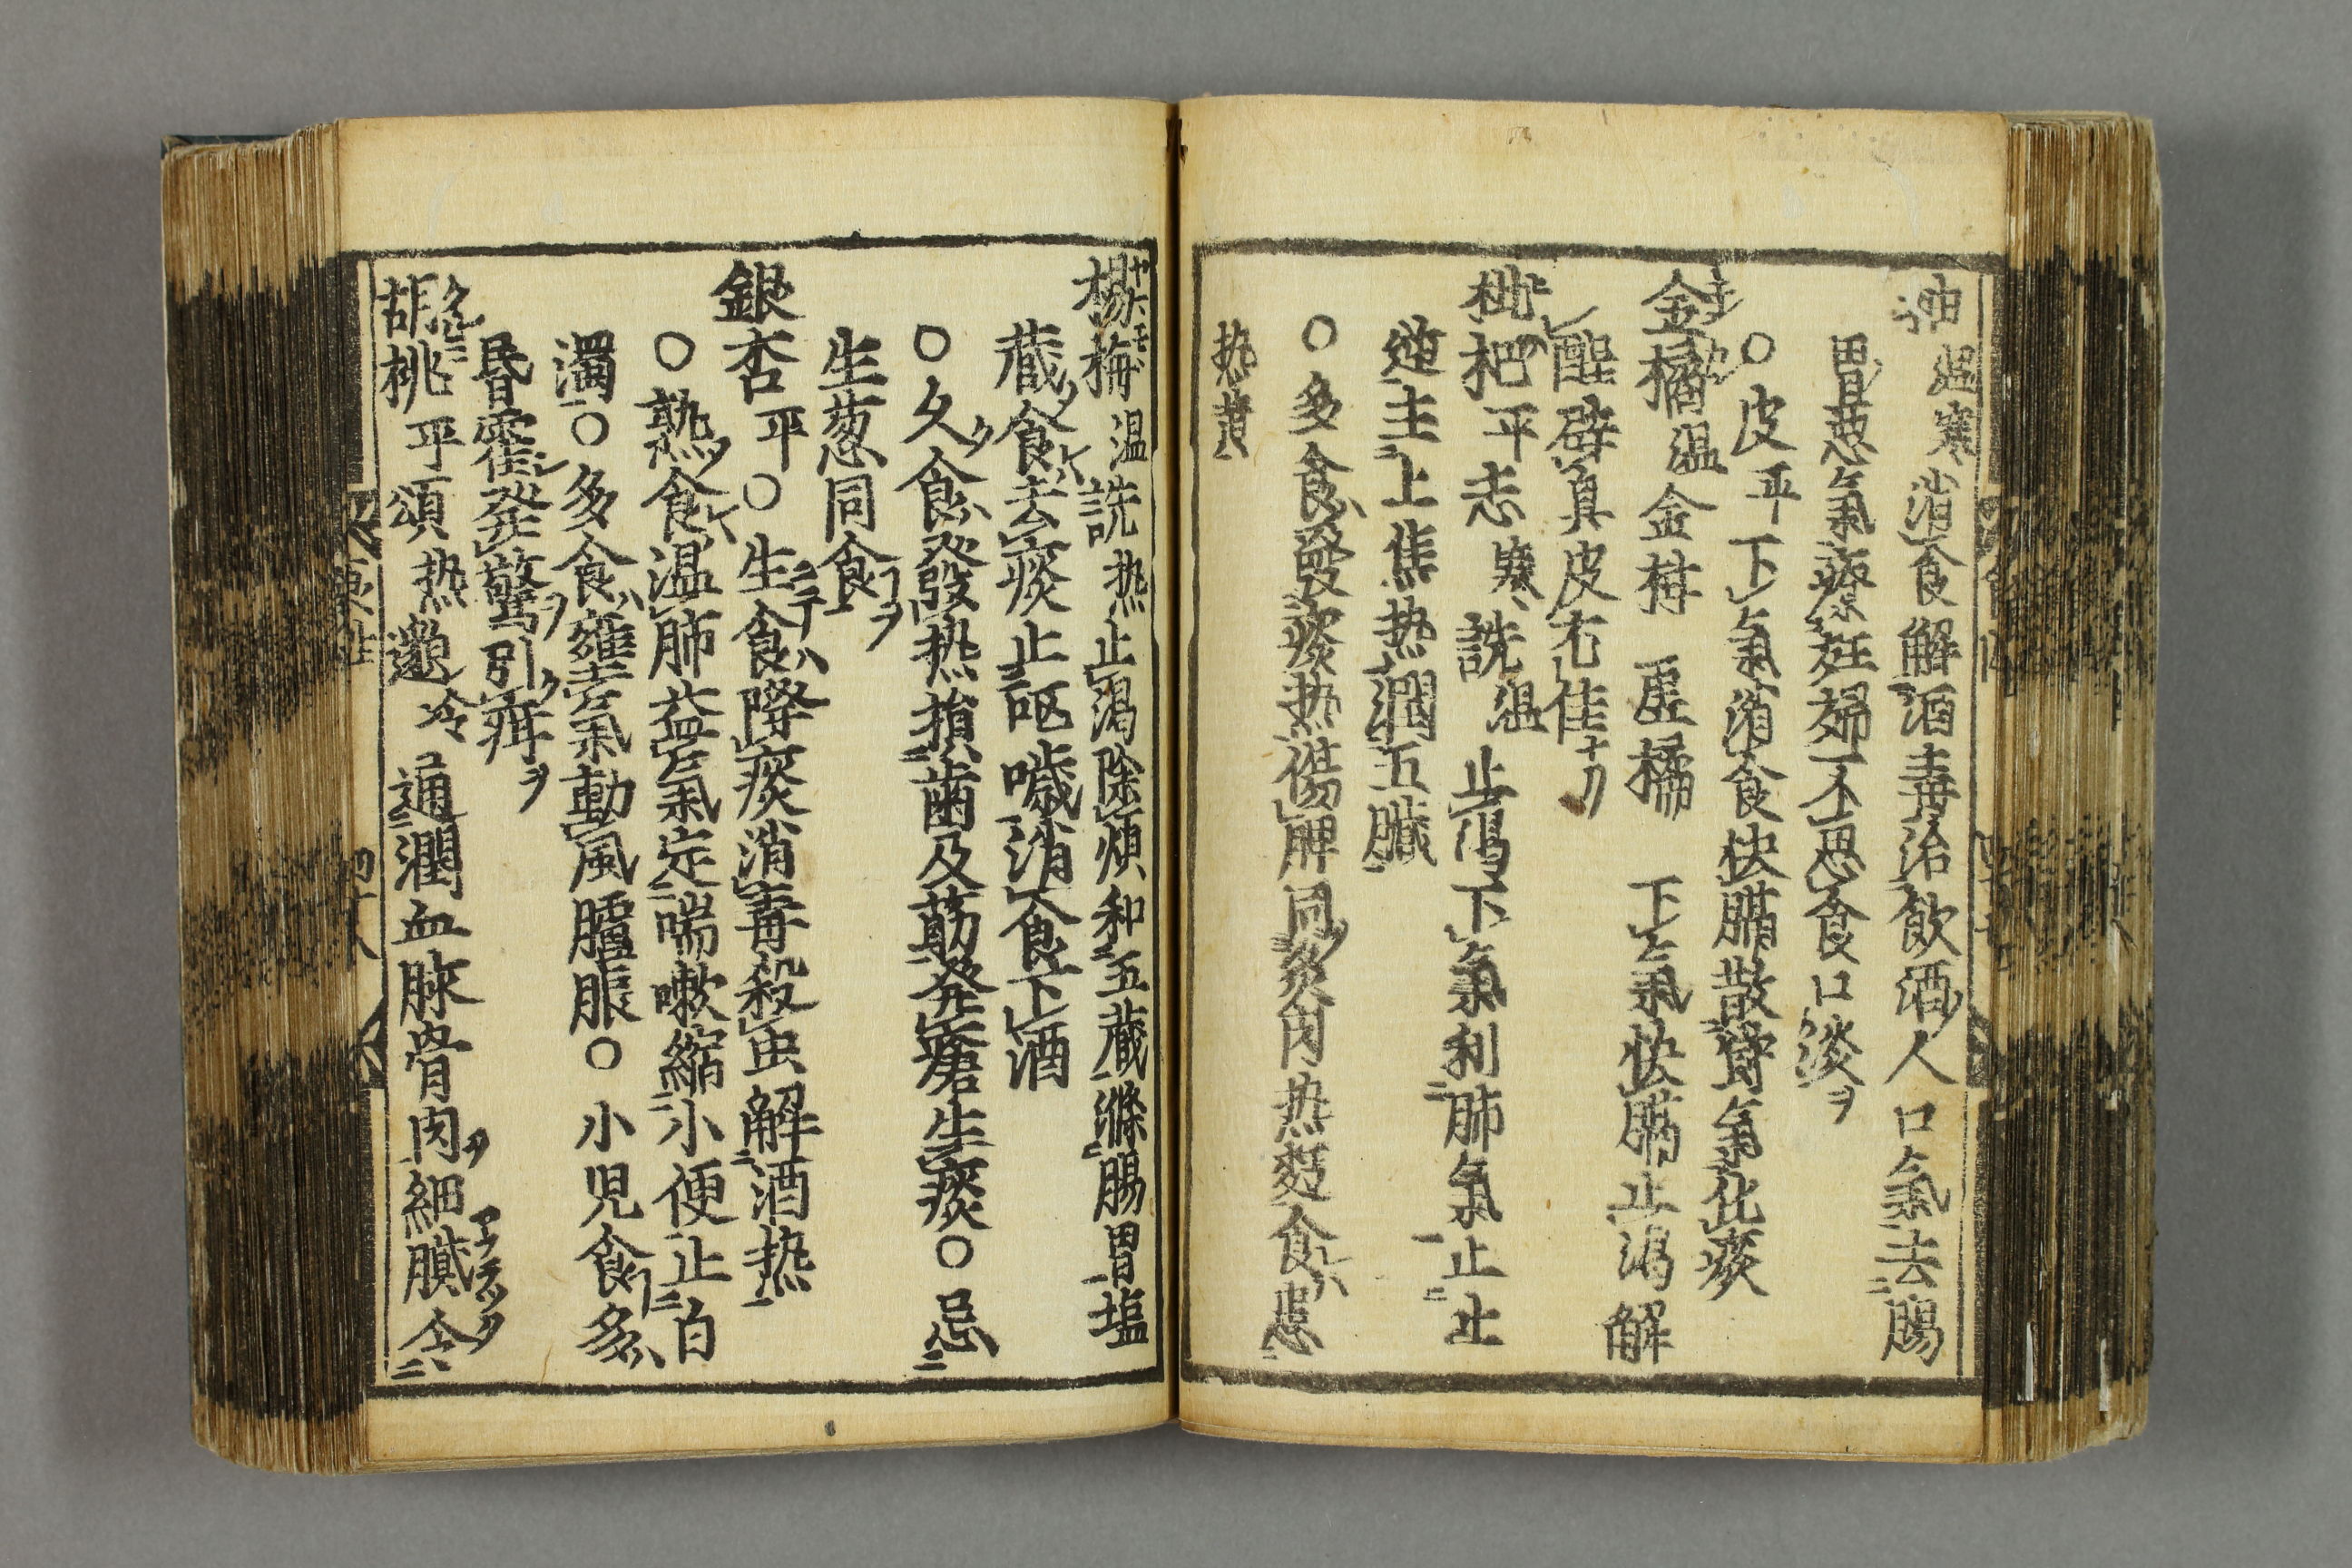 柚 温寒 消食解酒毒治飲酒人口氣去腸
胃惡氣療妊婦不思食口淡ヲ
○皮平下氣消食快膈散欝氣化痰
金橘 温 金柑 盧橘 下氣快膈止渇解
酲辟臭皮尤佳ナリ
枇杷 平 志 寒 詵 温 止渇下氣利肺氣止止
逆主上焦热潤五臓
○多食發痰热傷脾同炙肉热麪食患
热黄
楊梅 温 詵 热 止渇除煩和五蔵滌腸胃塩
蔵食去痰止呕噦消食下酒
○久食發热損歯及筋発瘡生痰○忌
生葱同食
銀杏 平○生食降痰消毒殺虫解酒热
○熟食温肺益氣定喘嗽縮小便止白
濁○多食壅氣動風臚脹○小児食多
昏霍発驚引疳ヲ
胡桃 平 頌 热 邈 冷 通潤血脉骨肉細膩令